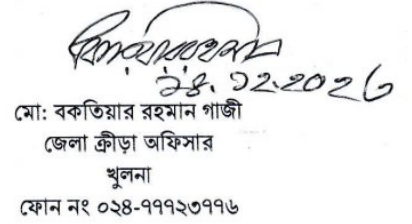 মো: বকতিয়ার রহমান গাজী
জেলা ক্রীড়া অফিসার
খুলনা
ফোন নং ০২৪-৭৭৭২৩৭৭৬